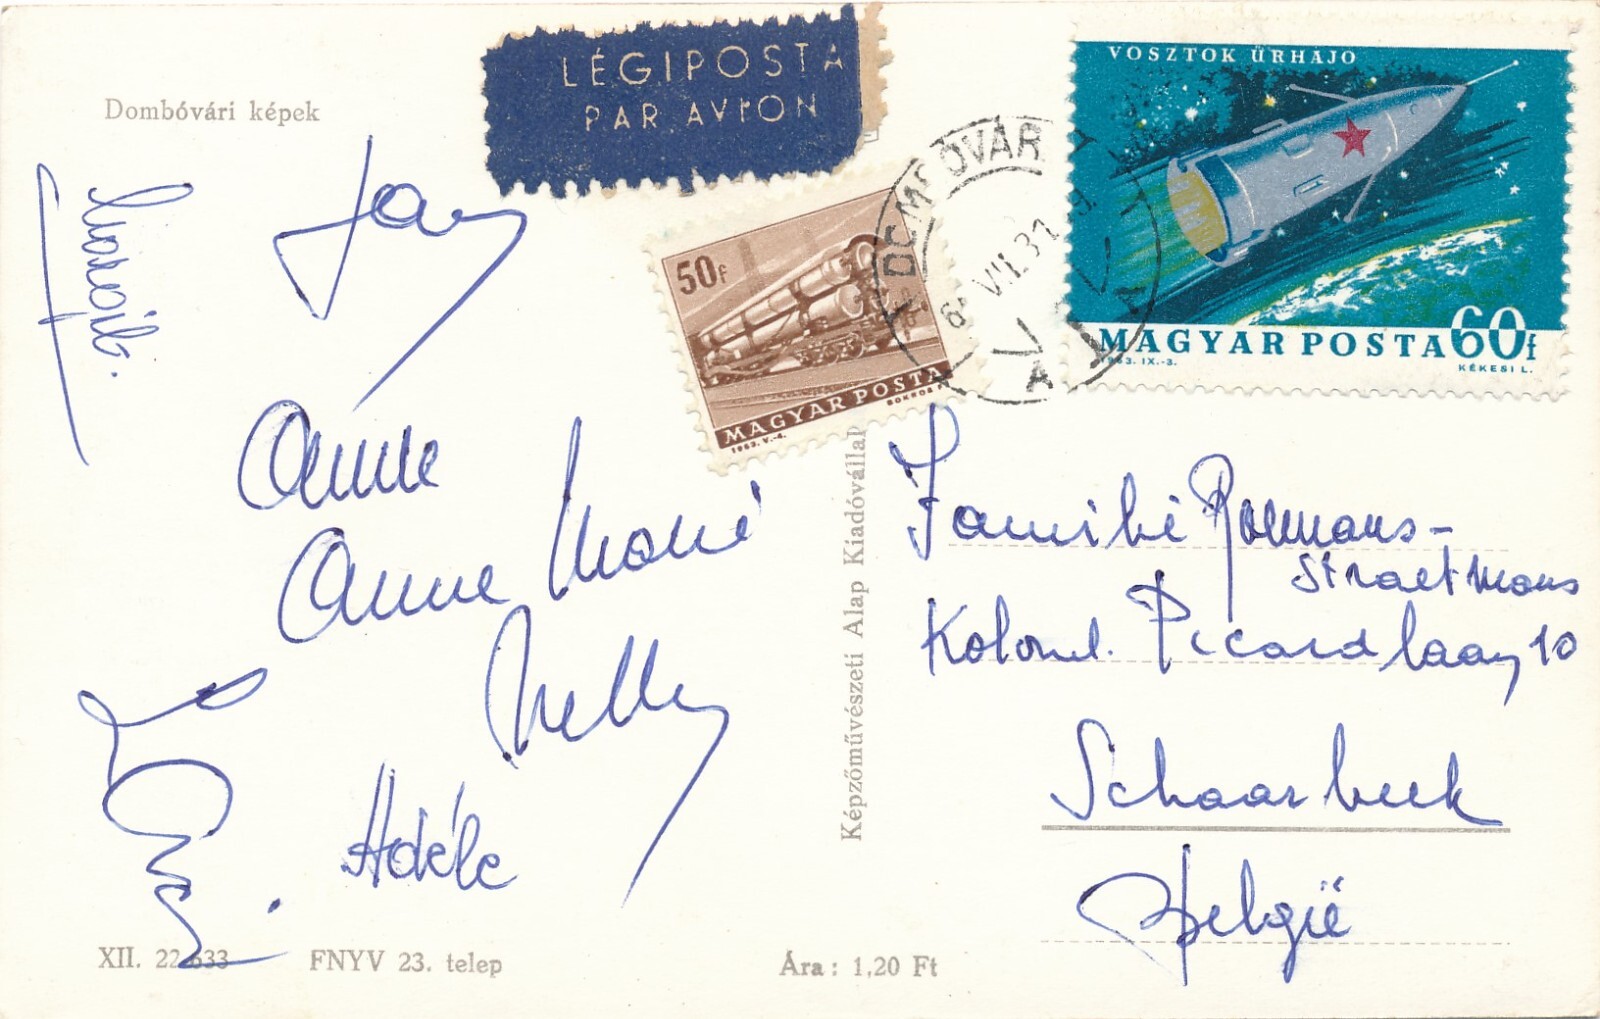 Dombóvári képek
LÉGIPOSTA
PAR AVION
50f
MAGYAR POSTA
1963. V.-4.
DOMBÓVÁR
VII.31.
A
VOSZTOK ŰRHAJO
MAGYAR POSTA 60f
1963. IX.-3.
KÉKESI L.
Anne
Anne Marie
Nelly
Adèle
Képzőművészeti Alap Kiadóvállal
Familie
Straetmans
Kolonel. Picardlaan 10
Schaarbeek
België
XII. 22 633
FNYV 23. telep
Ára: 1,20 Ft